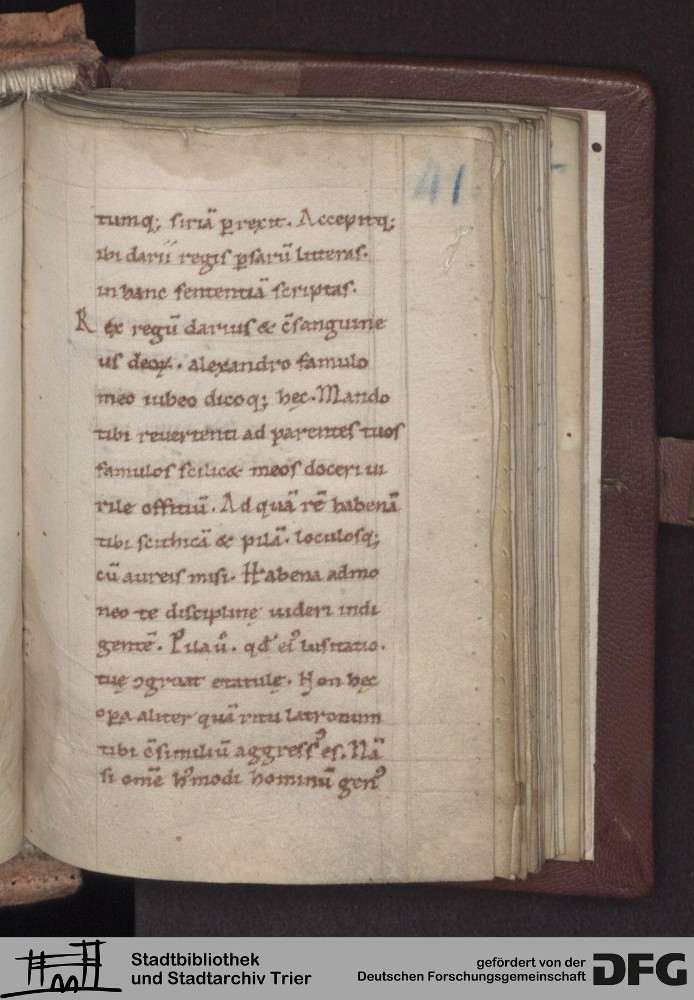 41
tumq; siriā ꝑrexit. Accepitq;
ibi darii regis ꝑsarū litteras.
in hanc sententiā scriptas.
Rex regū darius & c̄sanguine
us deoꝝ. alexandro famulo
meo iubeo dicoq; hęc. Mando
tibi reuertenti ad parentes tuos
famulos scilic& meos doceri ui
rile offitiū. Ad quā rē habenā
tibi scithicā & pilā. loculosq;
cū aureis misi. Habena admo
neo te disciplinę uideri indi
gentē. Pila ū. qđ ei᾿ lusitatio.
tuę ↄgruat etatulę. Non hęc
oꝑa aliter quā ritu latronum
tibi c̄similiū aggress᾿ es. Nā
si om̄e h᾿modi hominū gen᾿
Stadtbibliothek
und Stadtarchiv Trier
gefördert von der
Deutschen Forschungsgemeinschaft
DFG